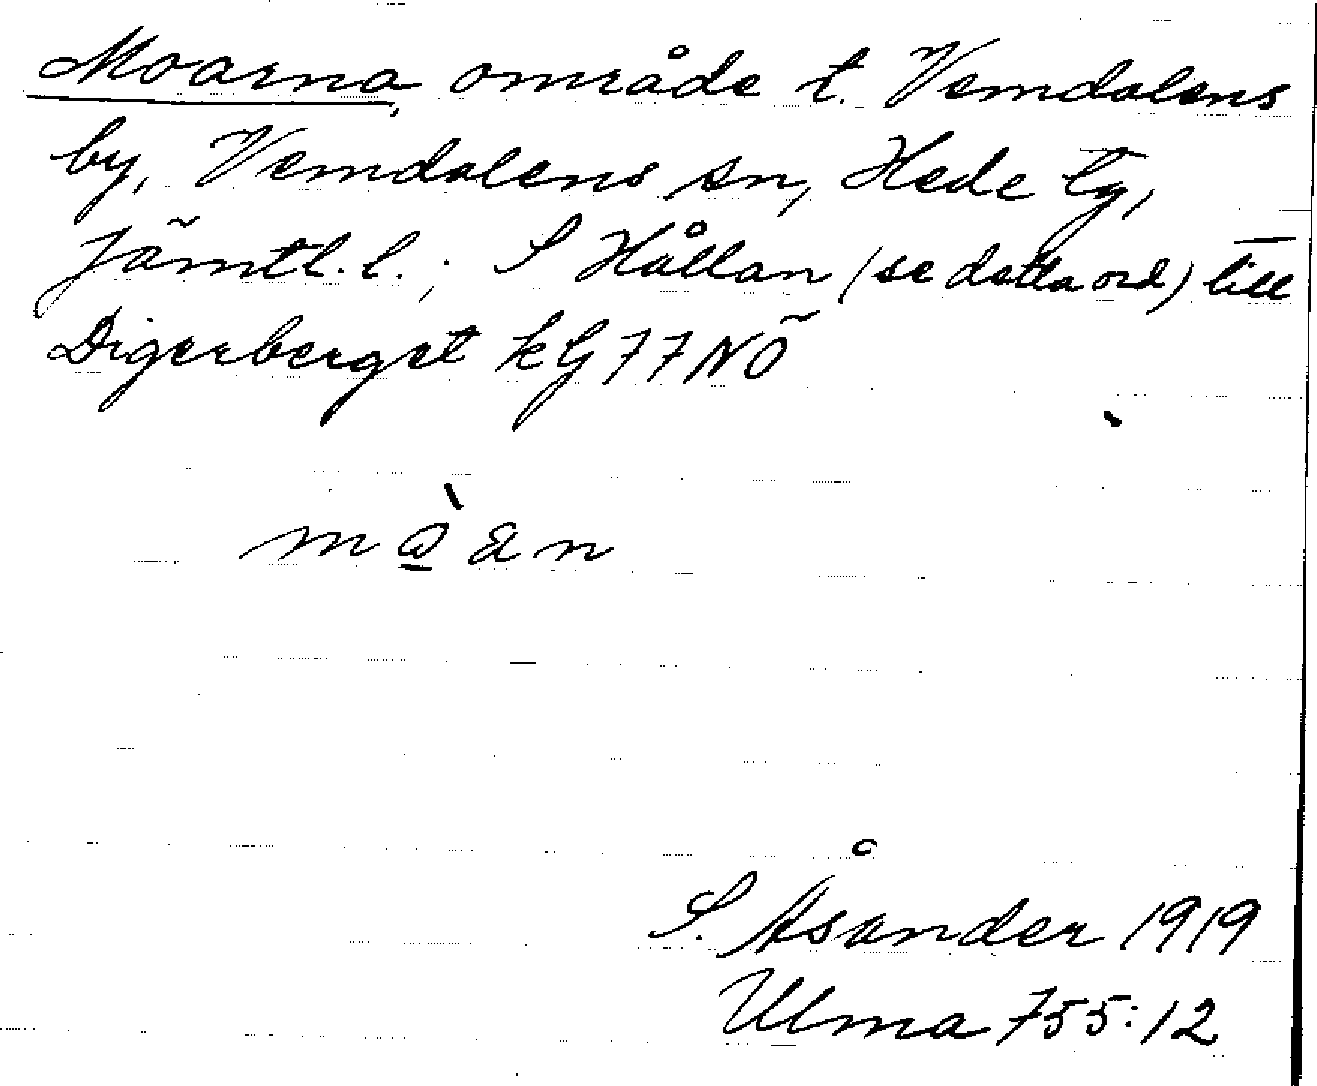 Moarna, område t. Vemdalens
by, Vemdalens sn, Hede tg,
Jämtl. l.; S Hållan (se detta ord) till
Digerberget kG77NÖ
S. Åsander 1919
Ulma 755:12